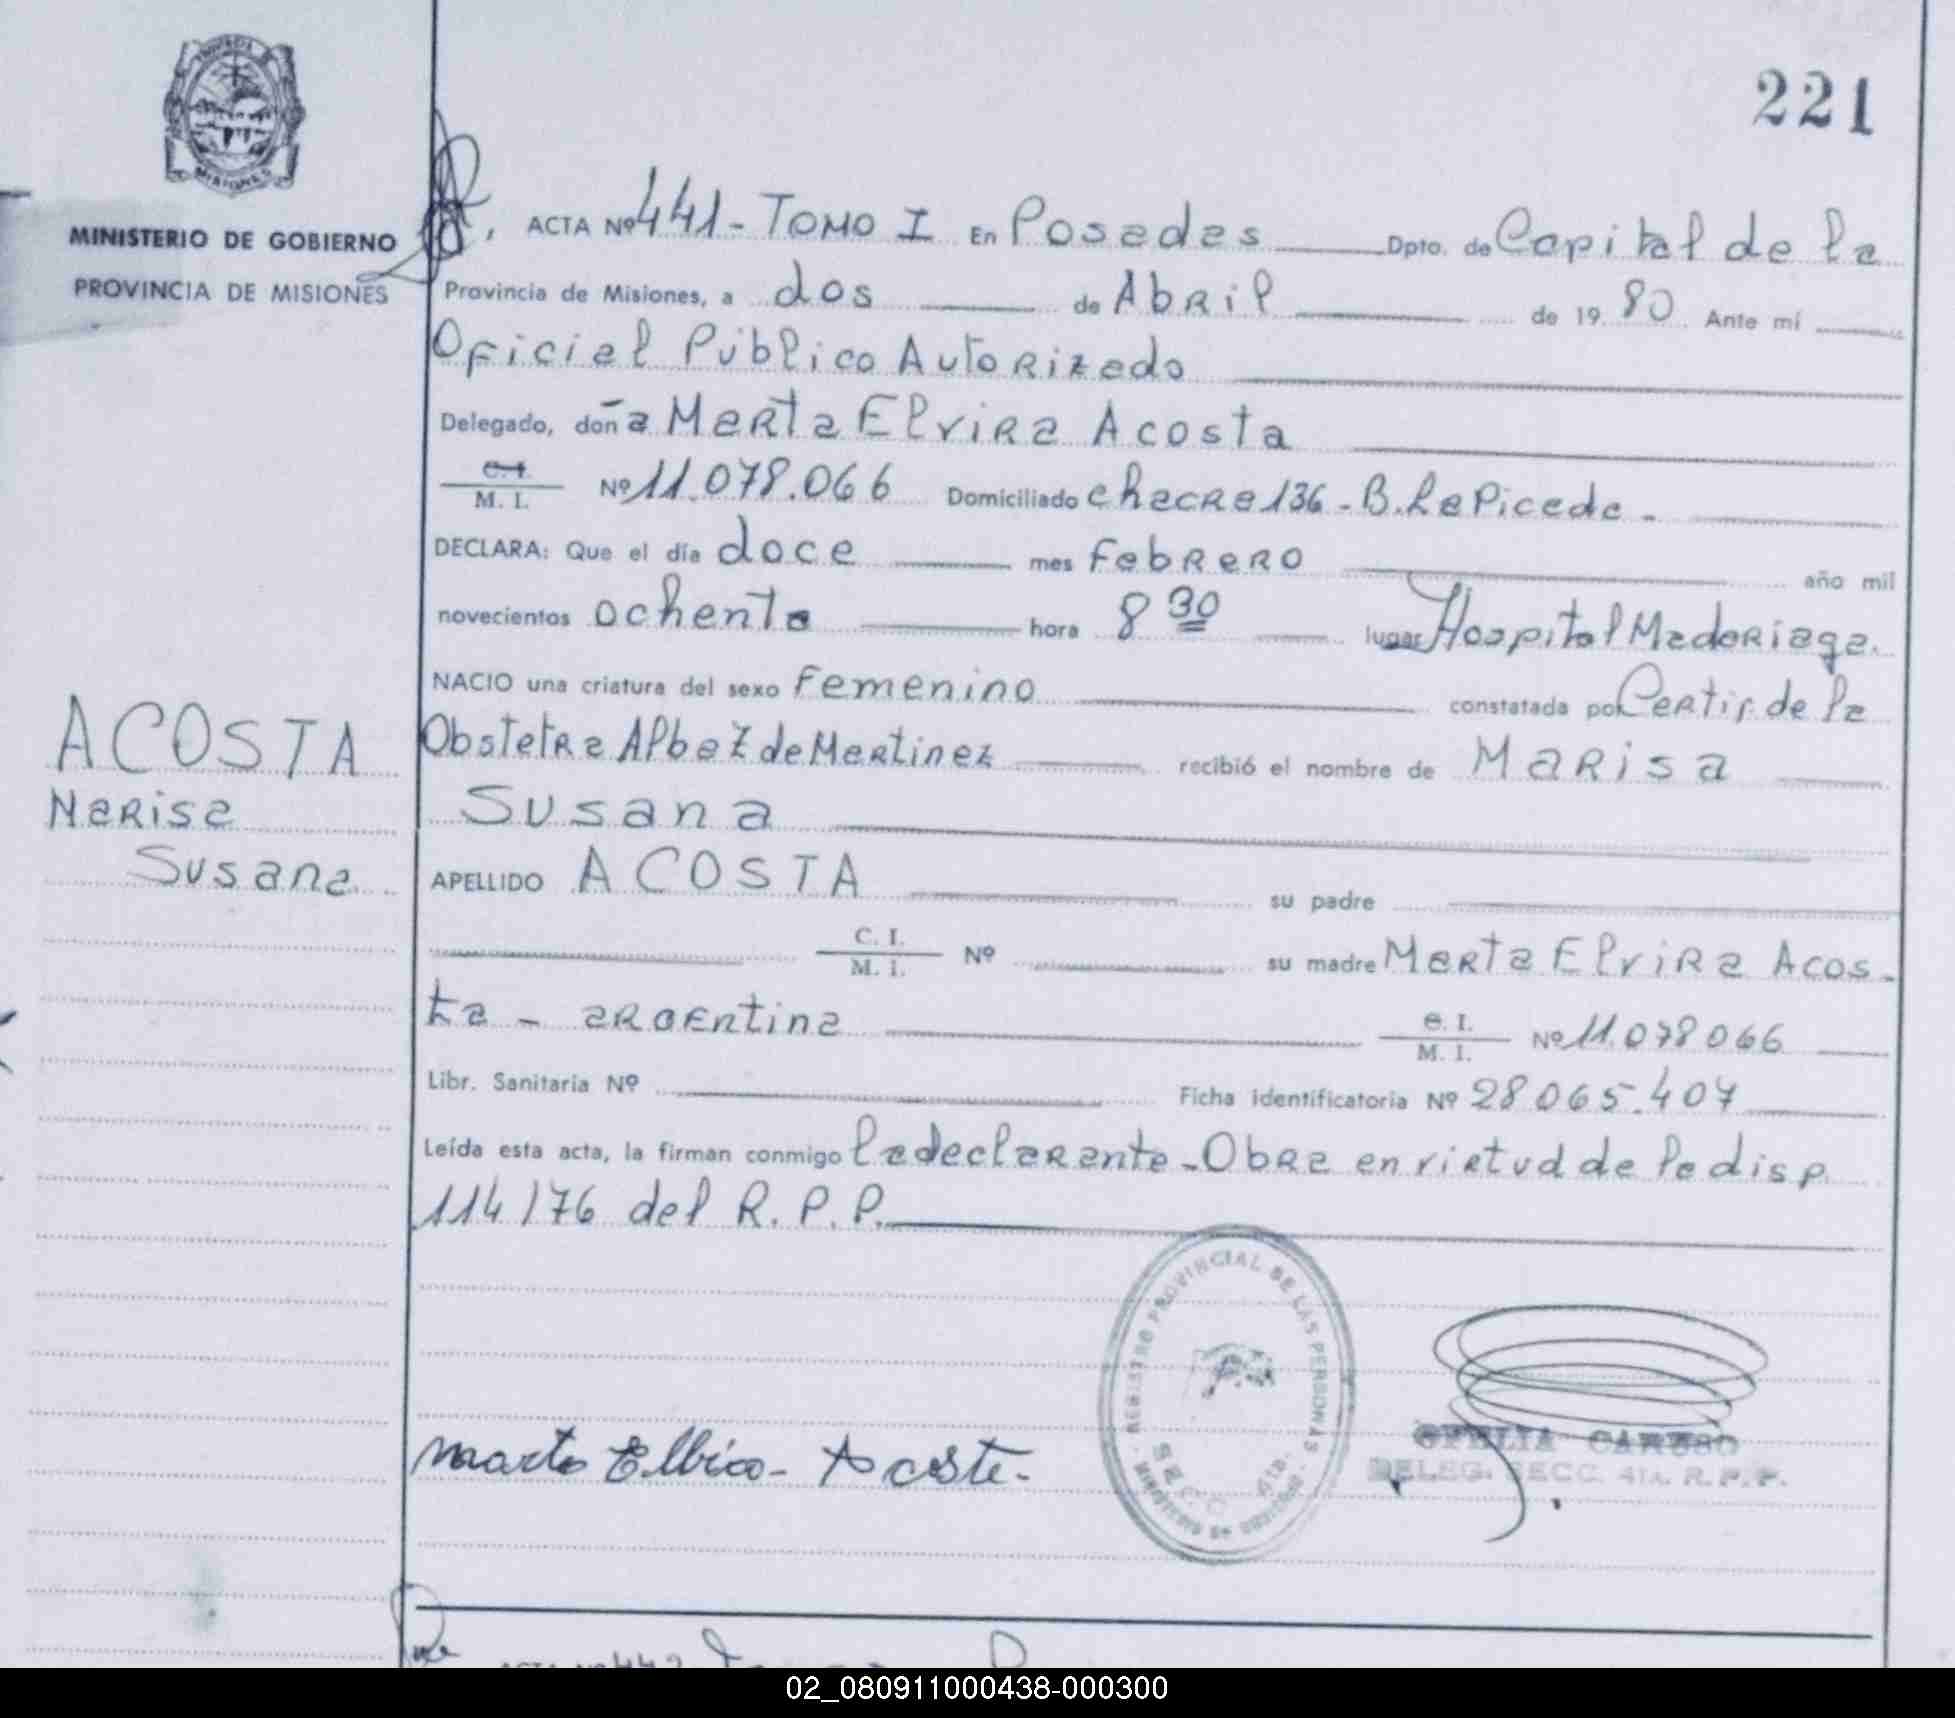 221
MISIONES
MINISTERIO DE GOBIERNO
PROVINCIA DE MISIONES
ACTA Nº 441 - TOMO I En Posadas Dpto. de Capital de la
Provincia de Misiones, a dos de Abril de 19 80 Ante mí
Oficial Público Autorizado
Delegado, doña Marta Elvira Acosta
C.I. / M. I. Nº 11.078.066 Domiciliado chacra 136 - B. La Picada -
DECLARA: Que el día doce mes Febrero año mil
novecientos ochenta hora 8 30 lugar Hospital Madariaga.
NACIO una criatura del sexo Femenino constatada por Certif. de la
Obstetra Alba Z de Martinez recibió el nombre de Marisa
Susana
APELLIDO ACOSTA su padre
C. I. / M. I. Nº su madre Marta Elvira Acos-
ta - argentina C. I. / M. I. Nº 11.078066
Libr. Sanitaria Nº Ficha identificatoria Nº 28065.407
Leída esta acta, la firman conmigo la declarante - Obra en virtud de la disp.
114/76 del R. P. P.
ACOSTA
Marisa
Susana
REGISTRO PROVINCIAL DE LAS PERSONAS
SECC. 4ta.
MINISTERIO DE GOBIERNO
Marta Elbira - Acosta -
OFELIA CARUSO
DELEG. SECC. 4ta. R. P. P.
ACTA Nº 442
02_080911000438-000300